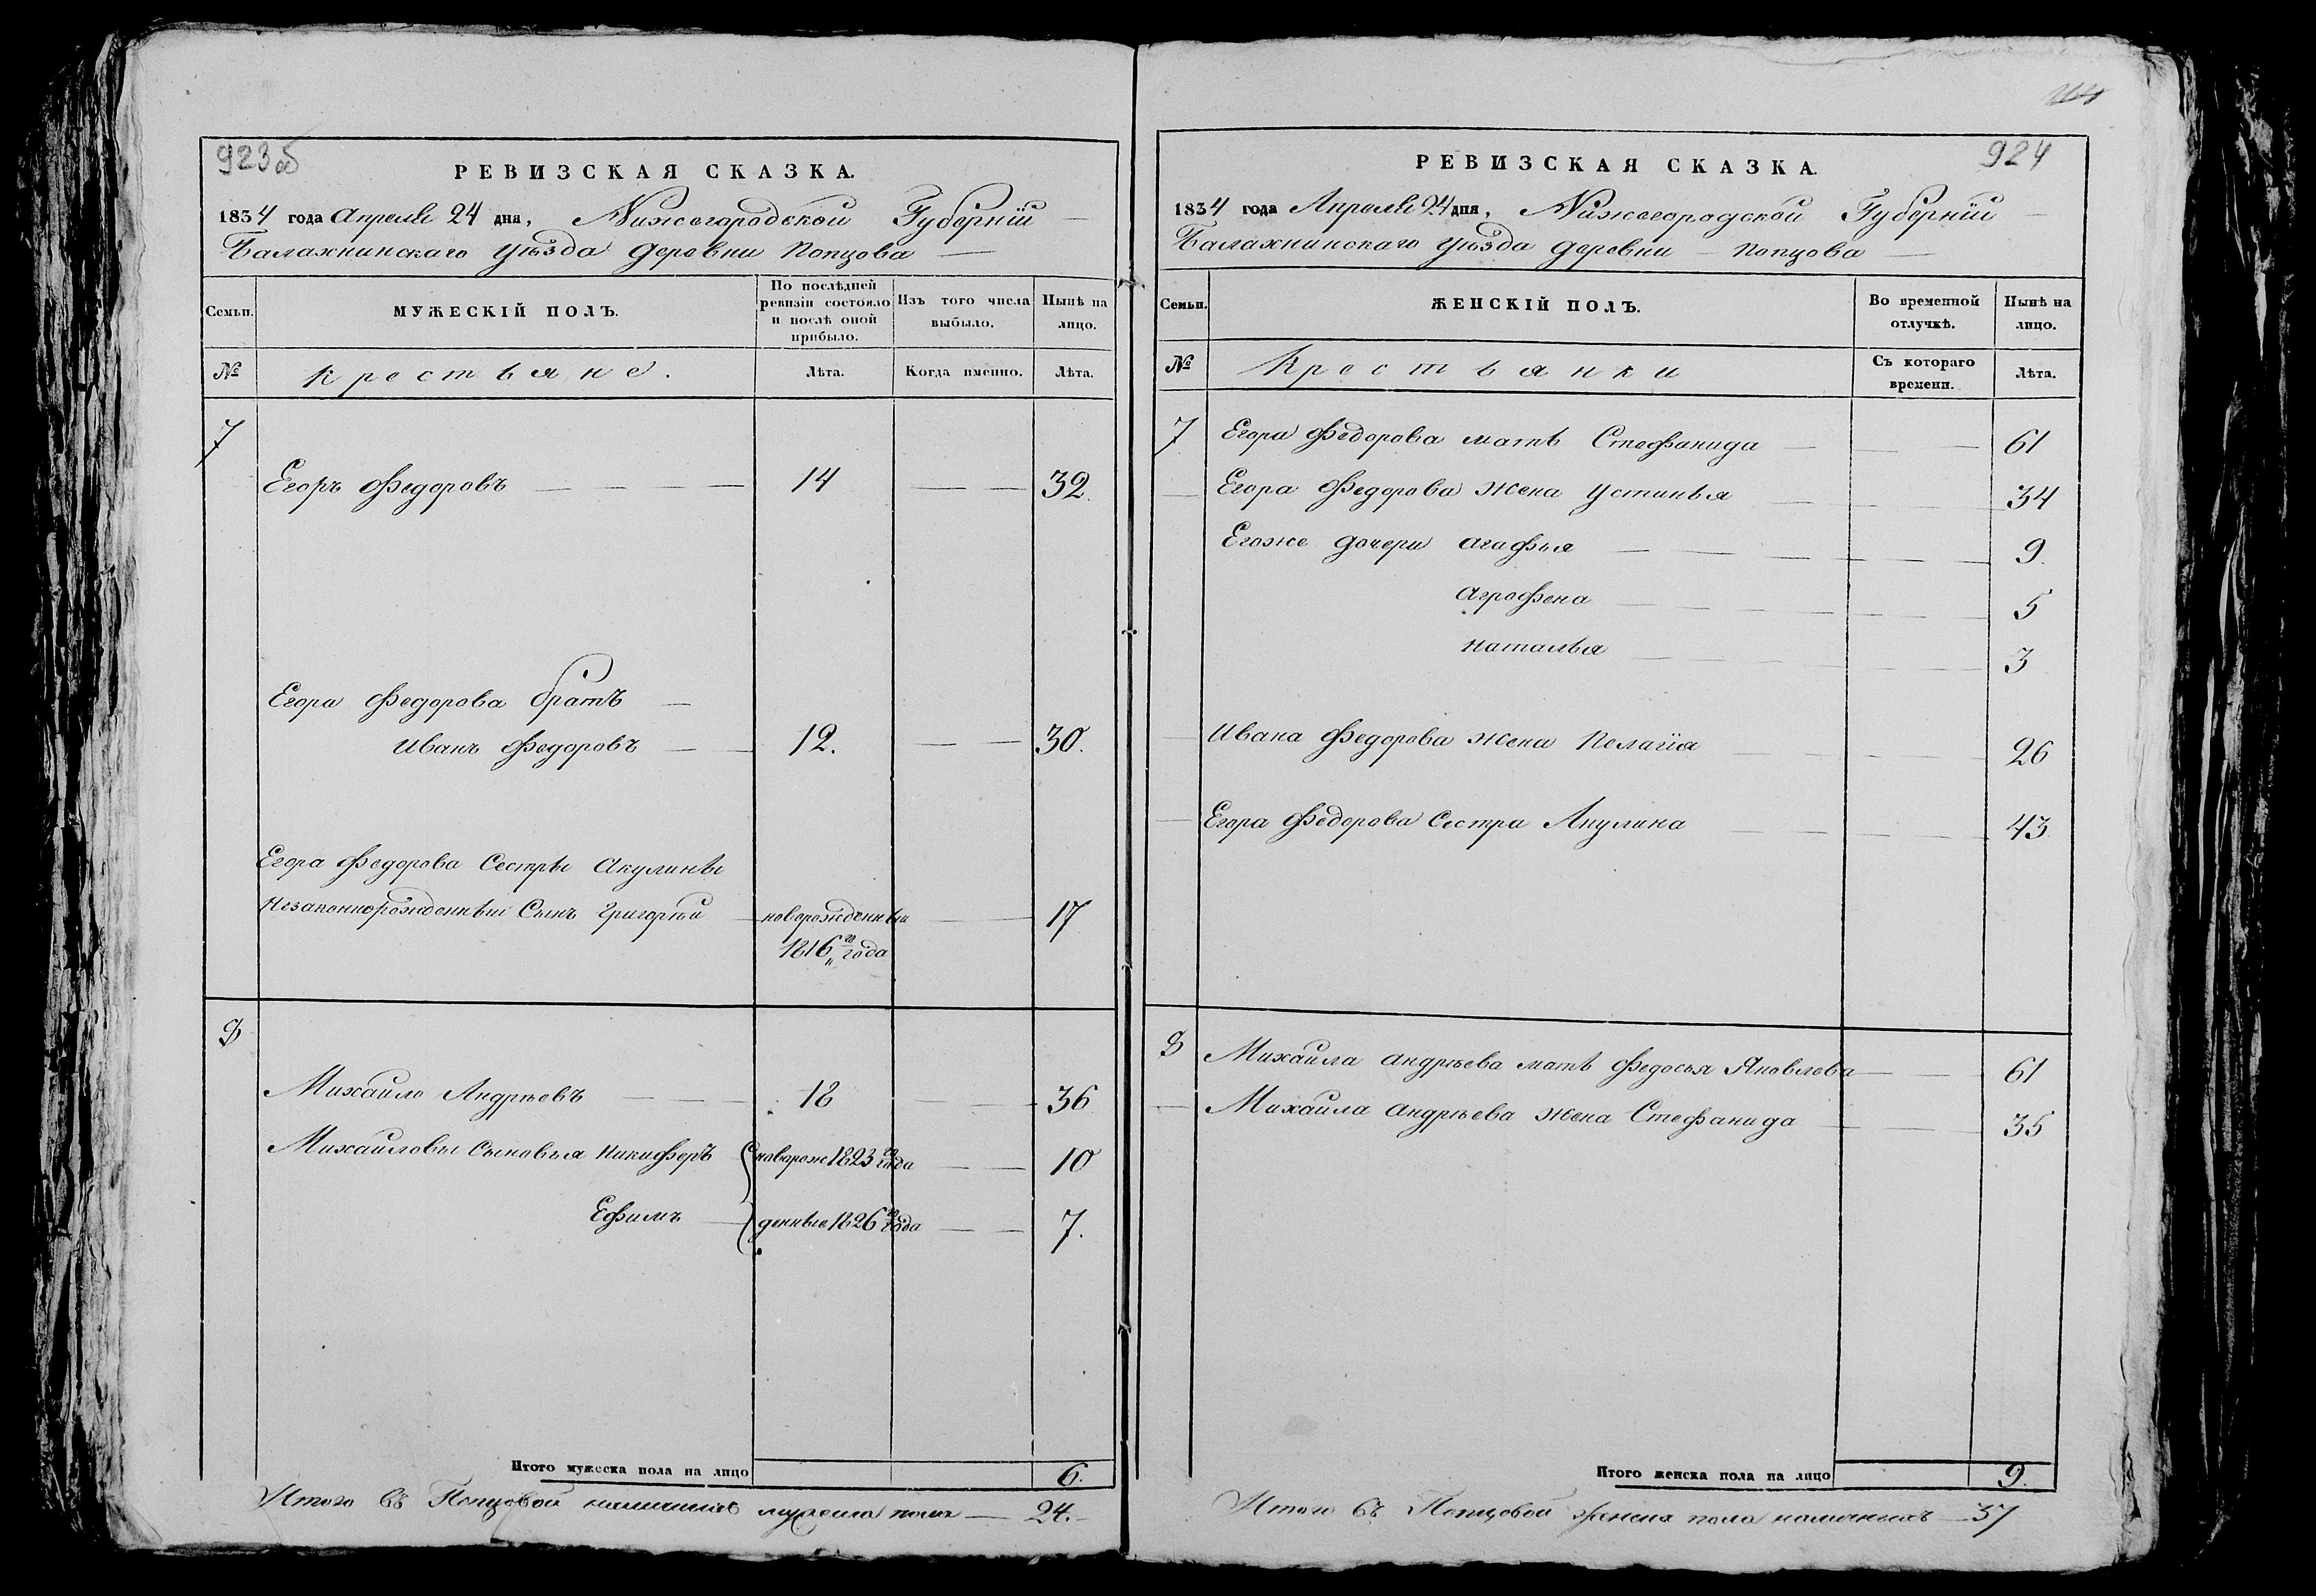 923об
РЕВИЗСКАЯ СКАЗКА.
1834 года Апреля 24 дня, Нижегородской Губерніи
Балахнинскаго уѣзда деревни Попцова
Семьи.
МУЖЕСКІЙ ПОЛЪ.
По послѣдней ревизіи состояло и послѣ оной прибыло.
Изъ того числа выбыло.
Нынѣ на лицо.
№
Крестьяне.
Лѣта.
Когда именно.
Лѣта.
7
Егоръ Федоровъ 14 32.
Егора Федорова братъ
Иванъ Федоровъ 12. 30.
Егора Федорова Сестры Акулины
незаконнорожденный Сынъ Григорий новорожденный 17
1816го года
8
Михайло Андрѣевъ 18 36
Михайловы Сыновья Никифоръ новорож 1823го года 10
Ефимъ денные 1826го года 7.
Итого мужеска пола на лицо 6.
Итого въ Попцовой наличныхъ мужеска пола 24.
924
РЕВИЗСКАЯ СКАЗКА.
1834 года Апреля 24 дня, Нижегородской Губерніи
Балахнинскаго уѣзда деревни Попцова
Семьи.
ЖЕНСКІЙ ПОЛЪ.
Во временной отлучкѣ.
Нынѣ на лицо.
№
Крестьянки
Съ котораго времени.
Лѣта.
7 Егора Федорова мать Стефанида 61
Егора Федорова жена Устинья 34
Егоже дочери Агафья 9.
Аграфена 5
Наталья 3
Ивана Федорова жена Пелагія 26
Егора Федорова Сестра Акулина 43
8 Михайла Андрѣева мать Федосья Яковлева 61
Михайла Андрѣева жена Стефанида 35
Итого женска пола на лицо 9.
Итого въ Попцовой женска пола наличныхъ 37